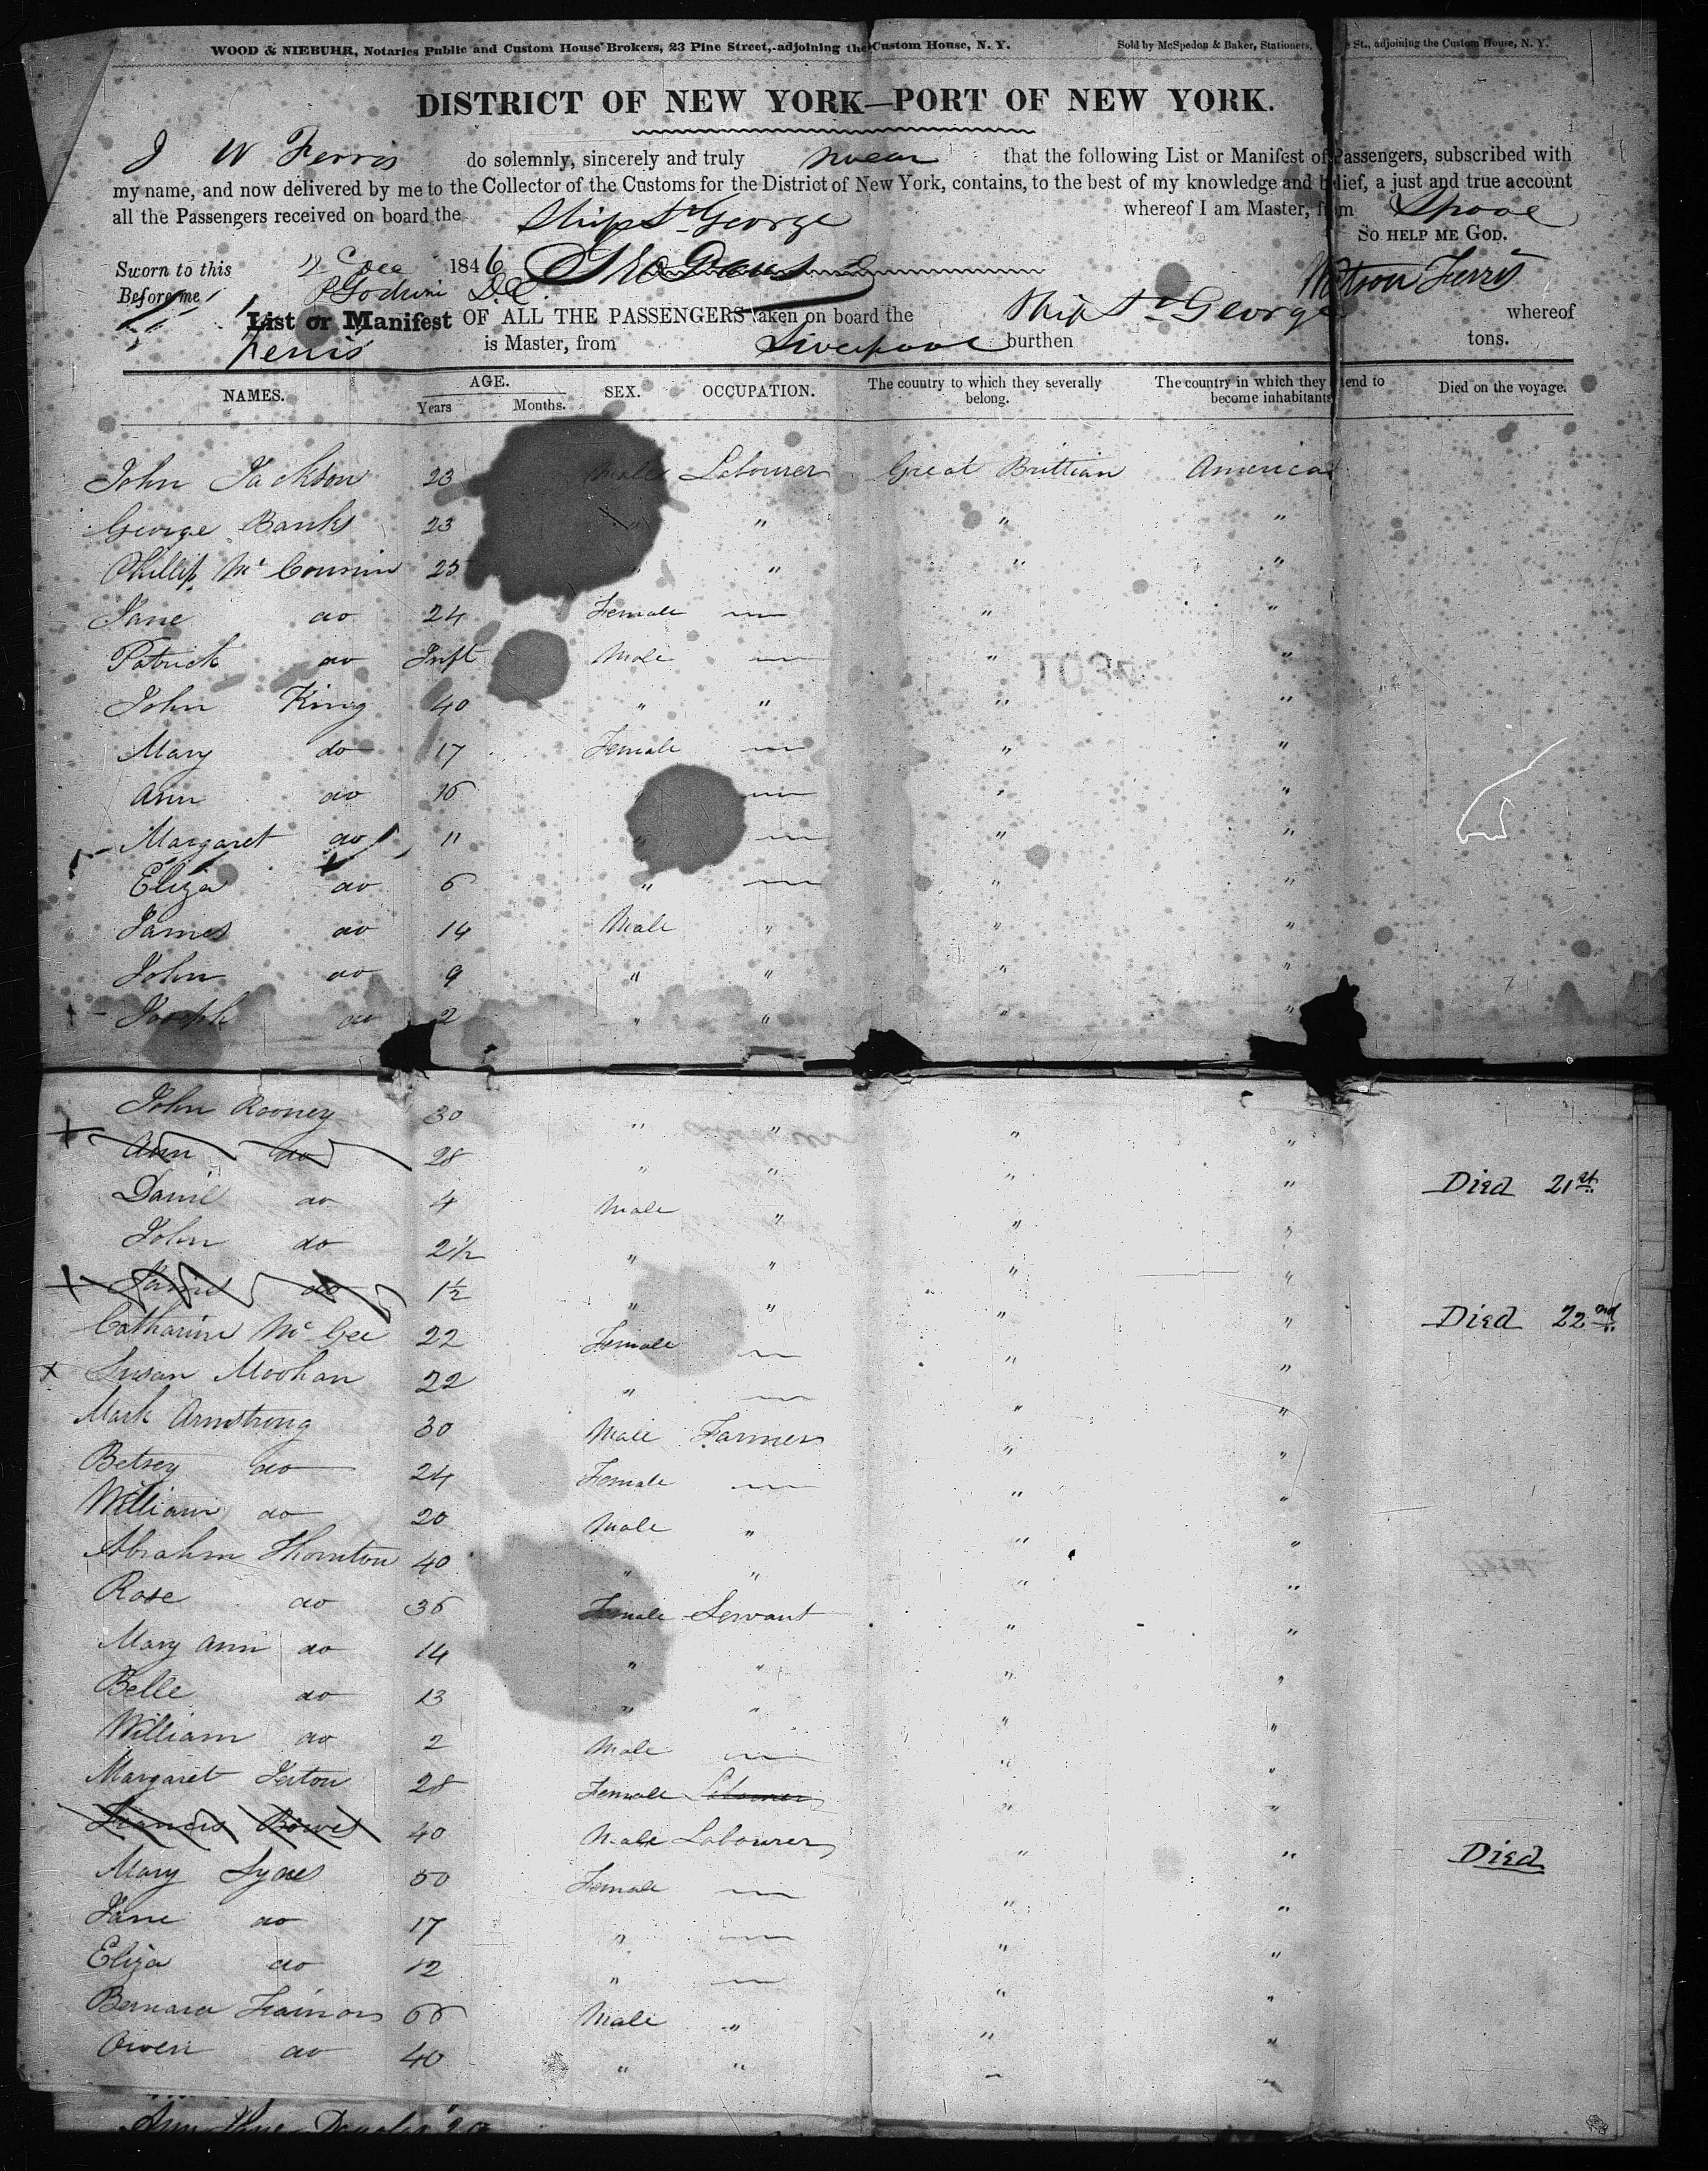 WOOD & NIEBUHR, Notaries Public and Custom House Brokers, 23 Pine Street, adjoining the Custom House, N. Y. Sold by McSpedon & Baker, Stationers, St., adjoining the Custom House, N. Y.
DISTRICT OF NEW YORK—PORT OF NEW YORK.
I W Ferris do solemnly, sincerely and truly swear that the following List or Manifest of Passengers, subscribed with
my name, and now delivered by me to the Collector of the Customs for the District of New York, contains, to the best of my knowledge and belief, a just and true account
all the Passengers received on board the Ship St George whereof I am Master, from Lpool
SO HELP ME GOD.
Sworn to this 2 Dec 1846 Watson Ferris
Before me
List or Manifest OF ALL THE PASSENGERS taken on board the Ship St George whereof
Ferris is Master, from Liverpool burthen tons.
NAMES. AGE. SEX. OCCUPATION. The country to which they severally belong. The country in which they tend to become inhabitants Died on the voyage.
Years Months.
John Jackson 23 Male Labourer Great Brittian America
George Banks 23 " " " "
Phillip Mc 25 " " " "
Jane do 24 Female — " "
Patrick do Inft Male — " "
John King 40 " " " "
Mary do 17 Female — " "
Ann do 16 " — " "
Margaret do 11 " — " "
Eliza do 6 " — " "
James do 14 Male " " "
John do 9 " " " "
Joseph do 2 " " " "
John Rooney 30 " " " "
Ann do 28 " " " " Died 21st
Daniel do 4 Male " " "
John do 2½ " " " "
do 1½ " " " " Died 22nd
Catharine Mc Gee 22 Female — " "
Susan Moohan 22 " — " "
Mark Armstrong 30 Male Farmer " "
Betsey do 24 Female — " "
William do 20 Male " " "
Abrahm Thornton 40 " " " "
Rose do 36 Female Servant " "
Mary Ann do 14 " " " "
Belle do 13 " " " "
William do 2 Male — " "
Margaret 28 Female Labourer " "
Francis Bowes 40 Male Labourer " " Died
Mary 50 Female — " "
Jane do 17 " — " "
Eliza do 12 " — " "
Bernard 66 Male " " "
Owen do 40 " " " "